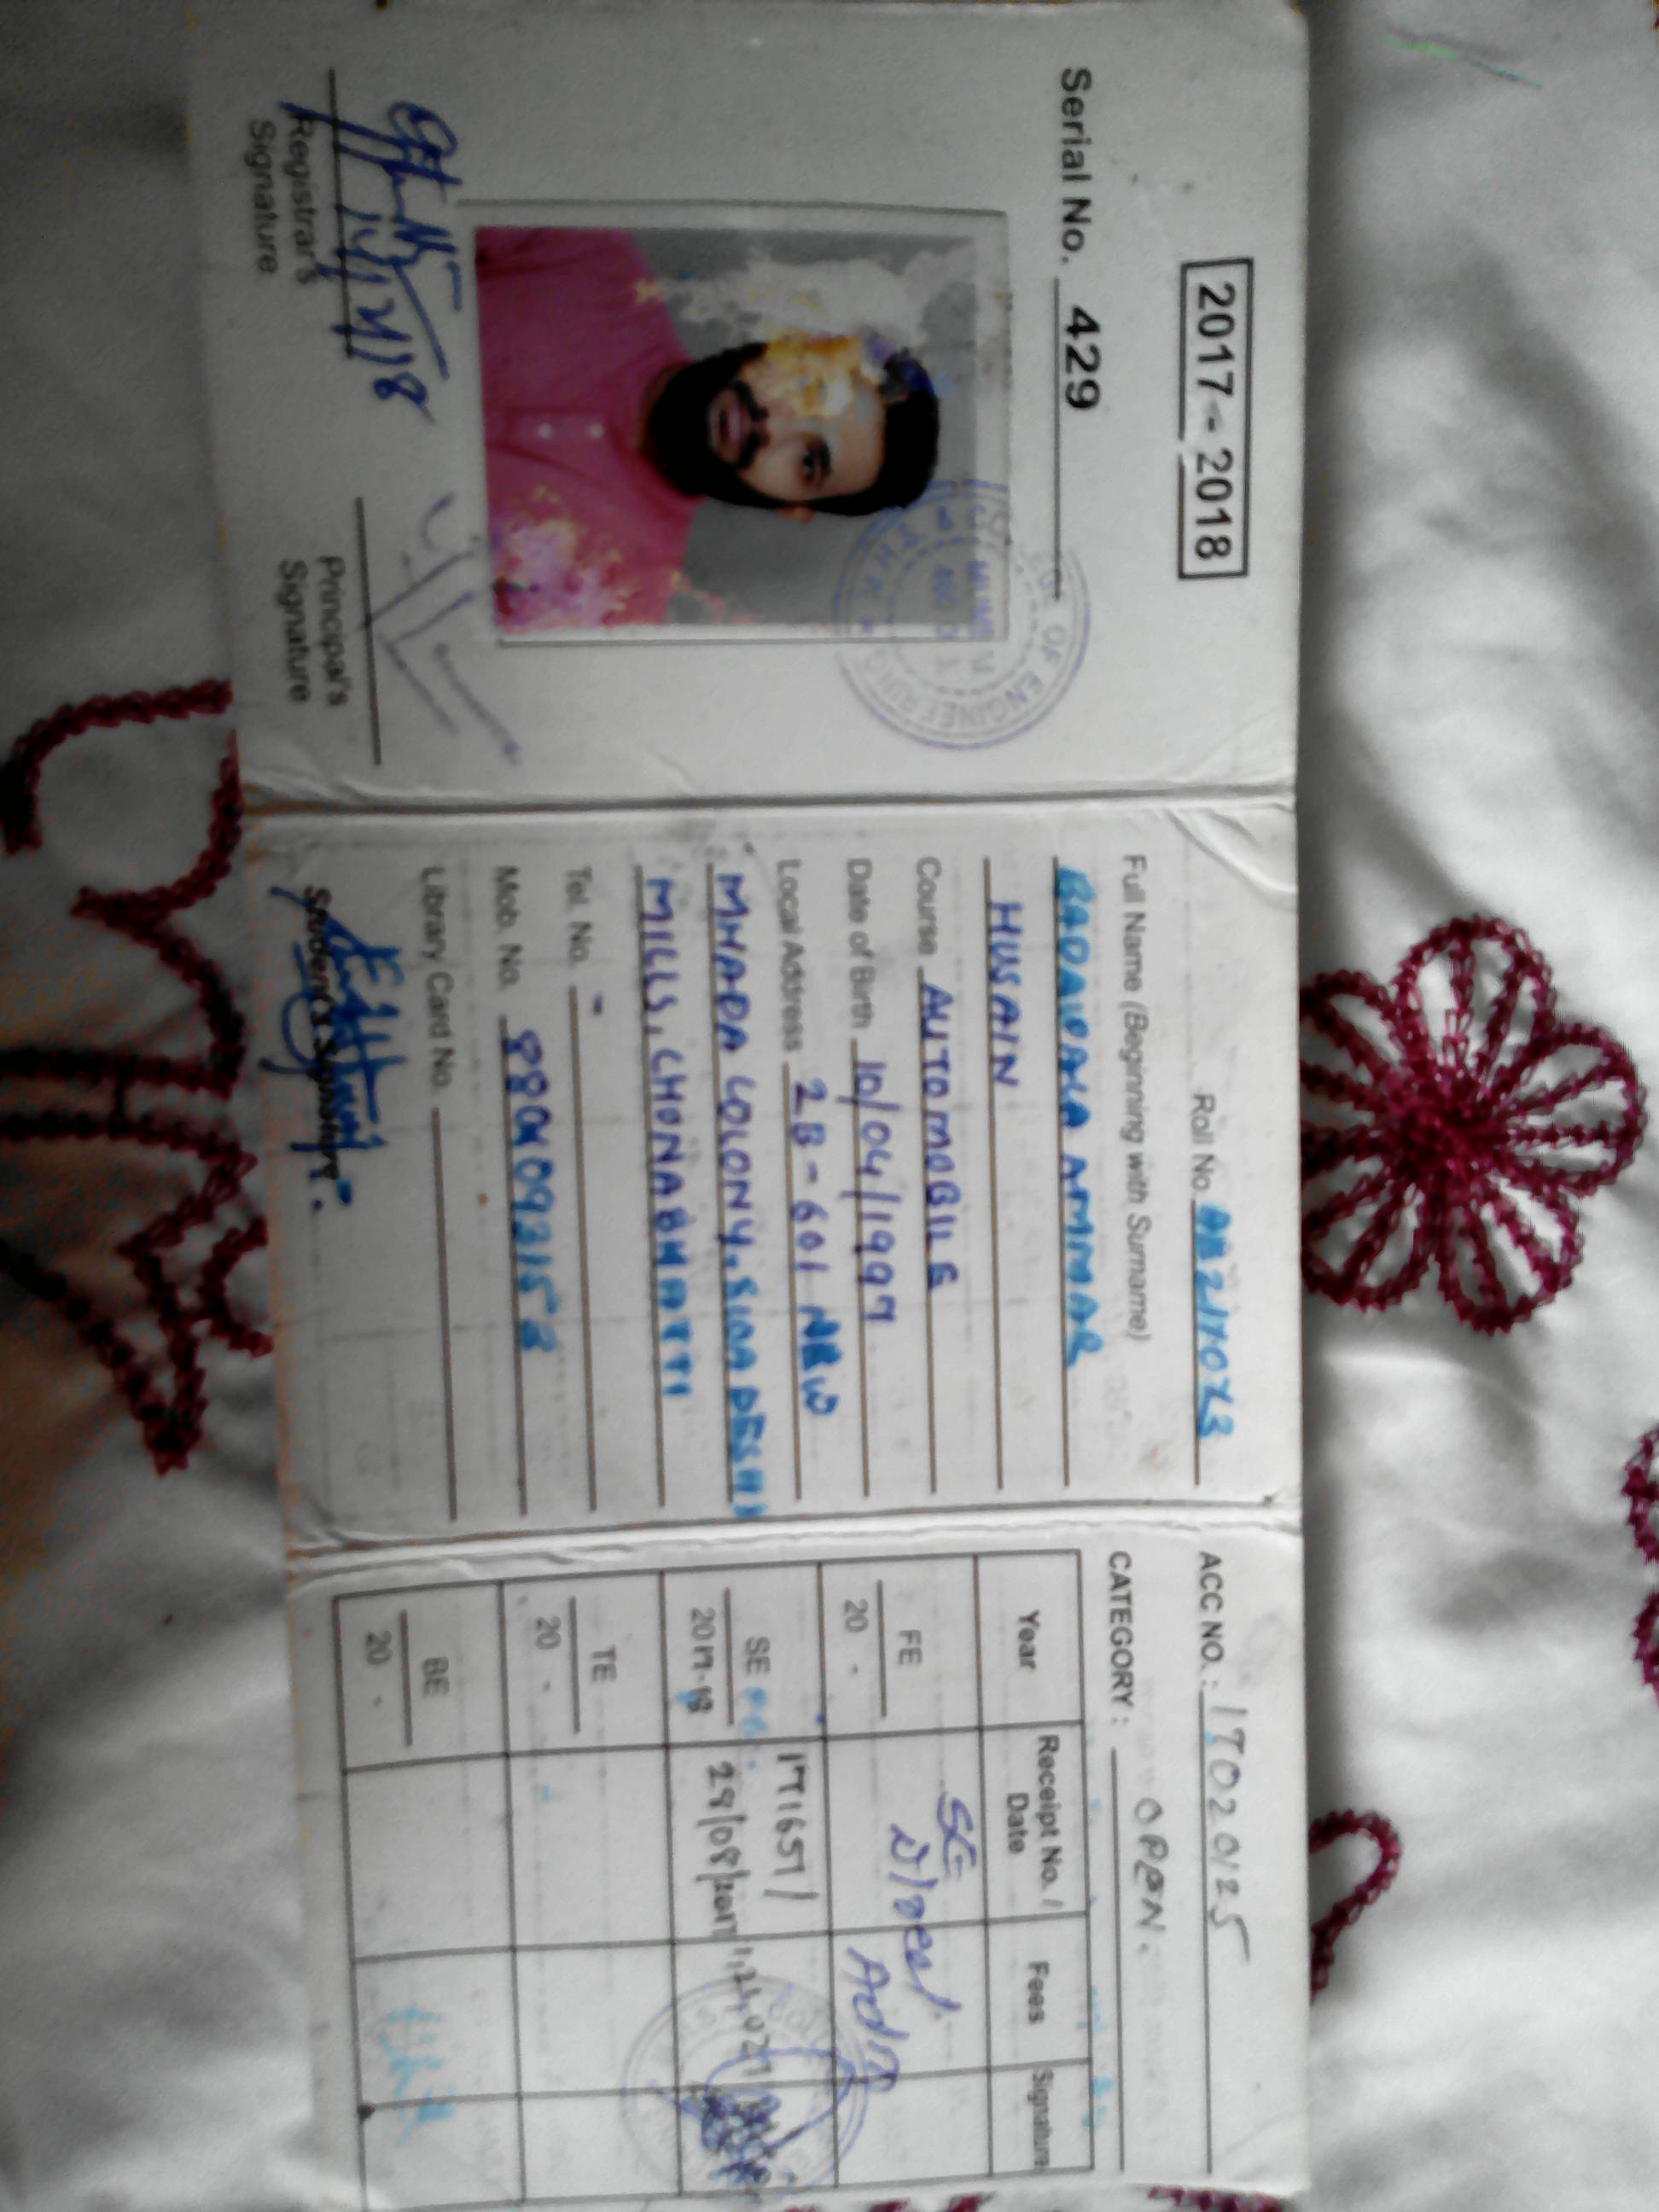 2017 - 2018
Serial No. 429
OF ENGINEERING
Registrar's
Signature
Principal's
Signature
Roll No.
Full Name (Beginning with Surname)
AMMAR
HUSAIN
Course AUTOMOBILE
Date of Birth 10/04/1999
Local Address 2B-601 NEW
MHADA COLONY,
MILLS, CHUNABHATTI
Tel. No. -
Mob. No.
Library Card No.
Student's Signature
ACC NO.: 17020125
CATEGORY: OPEN.
Year Receipt No. / Date Fees Signature
FE
20 -
SE
Direct
Adm
SE
2017-18
171651/
28/08/2017
TE
20 -
BE
20 -